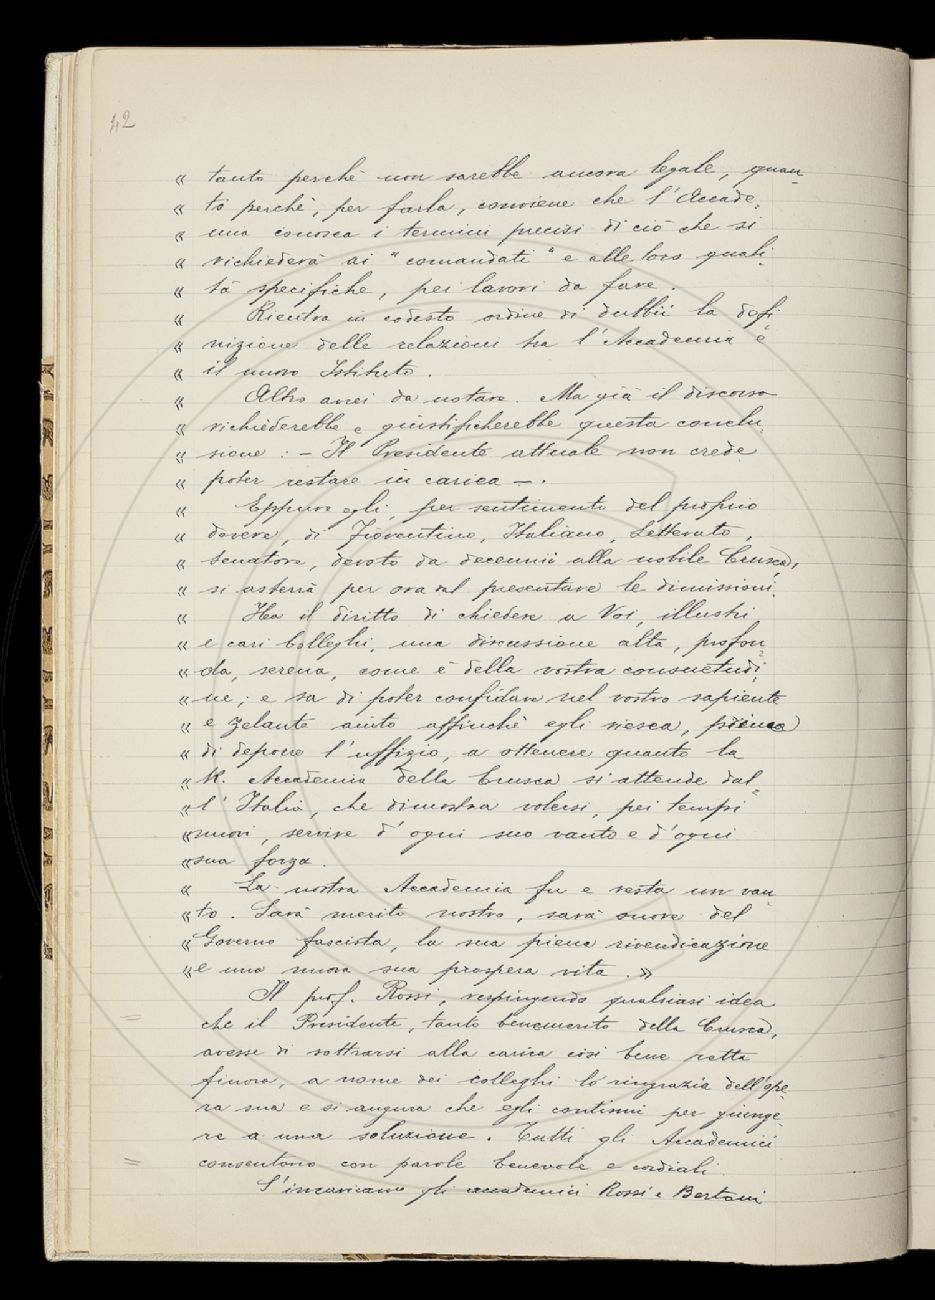 42
« tanto perchè non sarebbe ancora legale, quan-
« to perchè, per farla, conviene che l'Accade-
« mia conosca i termini precisi di ciò che si
« richiederà ai "comandati" e alle loro quali-
« tà specifiche, pei lavori da fare.
« Rientra in codesto ordine di dubbii la defi-
« nizione delle relazioni tra l'Accademia e
« il nuovo Istituto.
« Altro avrei da notare. Ma già il discorso
« richiederebbe e giustificherebbe questa conclu-
« sione: – Il Presidente attuale non crede
« poter restare in carica –.
« Eppure egli, per sentimento del proprio
« dovere, di Fiorentino, Italiano, Letterato,
« senatore, devoto da decennii alla nobile Crusca,
« si asterrà per ora dal presentare le dimissioni.
« Ha il diritto di chiedere a Voi, illustri
« e cari Colleghi, una discussione alta, profon-
« da, serena, come è della vostra consuetudi-
« ne; e sa di poter confidare nel vostro sapiente
« e zelante aiuto affinchè egli riesca, prima
« di deporre l'uffizio, a ottenere quanto la
« R. Accademia della Crusca si attende dal-
« l'Italia, che dimostra volersi, pei tempi
« nuovi, servire d'ogni suo vanto e d'ogni
« sua forza.
« La nostra Accademia fu e resta un van-
« to. Sarà merito nostro, sarà onore del
« Governo fascista, la sua piena rivendicazione
« e una nuova sua prospera vita.»
Il prof. Rossi, respingendo qualsiasi idea
che il Presidente, tanto benemerito della Crusca,
avesse di sottrarsi alla carica così bene retta
finora, a nome dei colleghi lo ringrazia dell'ope-
ra sua e si augura che egli continui per giunge-
re a una soluzione. Tutti gli Accademici
consentono con parole benevole e cordiali.
S'incaricano gli accademici Rossi e Bertoni